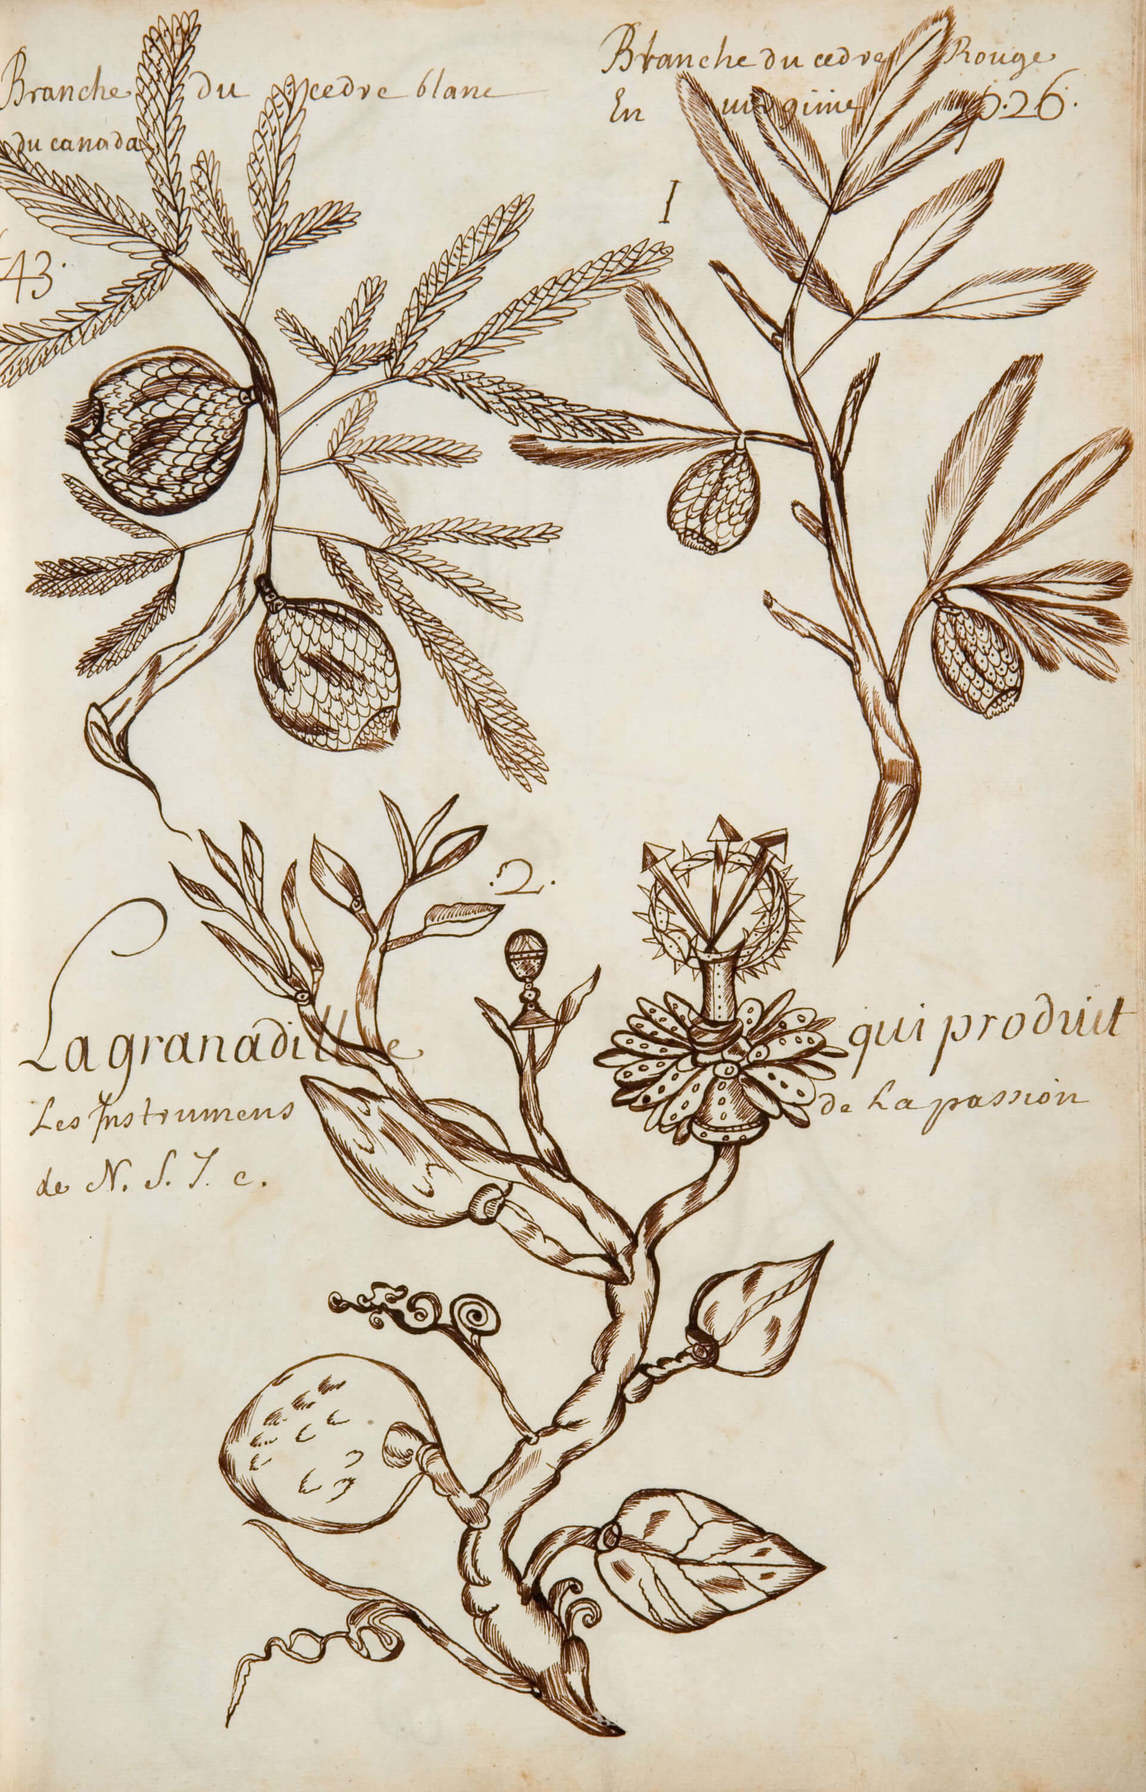 Branche du cedre blanc
du canada
43.
Branche du cedre Rouge
En uirginie p. 26.
I
.2.
La granadille qui produit
Les Instrumens de La passion
de N. S. J. c.